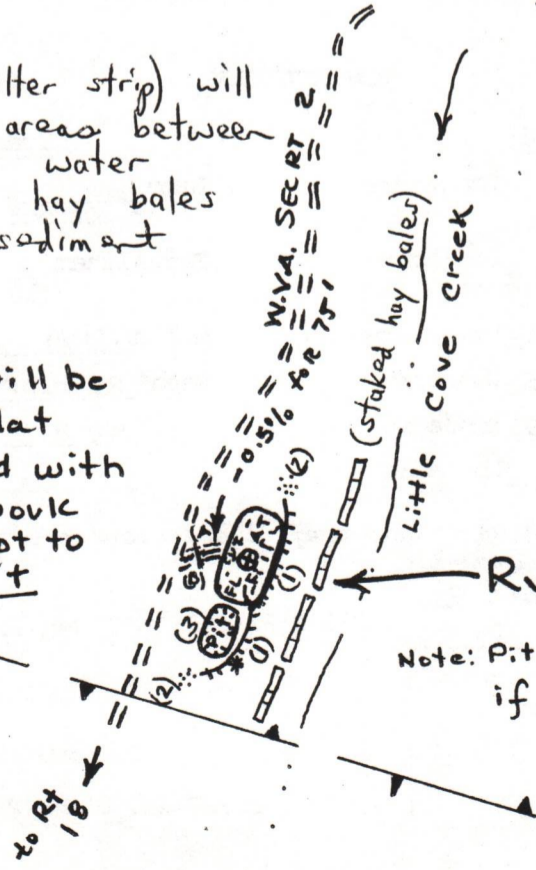 lter strip) will
areas between
water
hay bales
sediment
ill be
lat
d with
ot to
W.VA. SEC RT 2
-0.5% for 75'
(staked hay bales)
Little Cove Creek
(2)
(1)
(3)
Pit
(1)
(2)
Note: Pit
if
to Rt
18